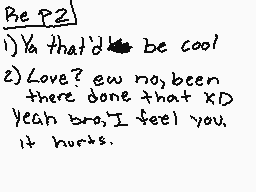 Re P2
1) Ya that'd be cool
2) Love? ew no, been
there done that XD
Yeah bro, I feel you.
it hurts.